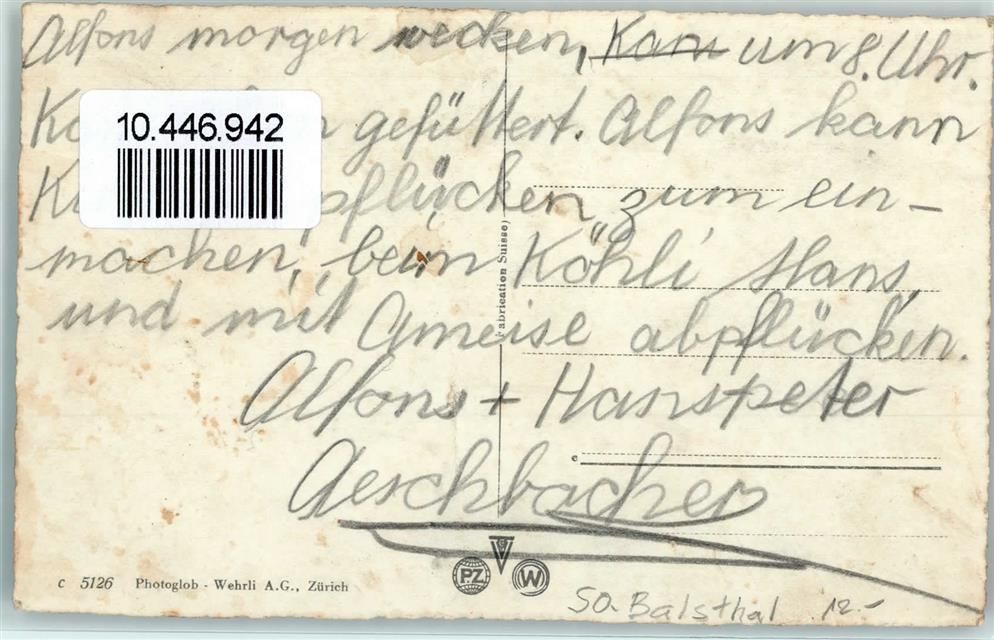 Alfons morgen wecken, Kann um 8. Uhr.
gefüttert. Alfons kann
pflücken zum ein-
machen, beim Köhli Hans,
und mit Ameise abpflücken.
Alfons + Hanspeter
Aeschbacher
10.446.942
Fabrication Suisse)
c 5126 Photoglob - Wehrli A.G., Zürich
PZ
W
SO. Balsthal 12.-